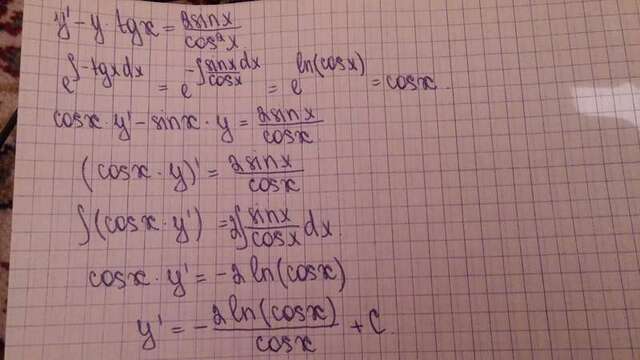 y' - y · tgx = 2sinx/cos²x
e^∫-tgxdx = e^-∫sinxdx/cosx = e^ln(cosx) = cosx.
cosx y' - sinx · y = 2sinx/cosx
(cosx · y)' = 2sinx/cosx
∫(cosx · y') = 2∫sinx/cosx dx.
cosx · y' = -2 ln(cosx)
y' = -2ln(cosx)/cosx + C.